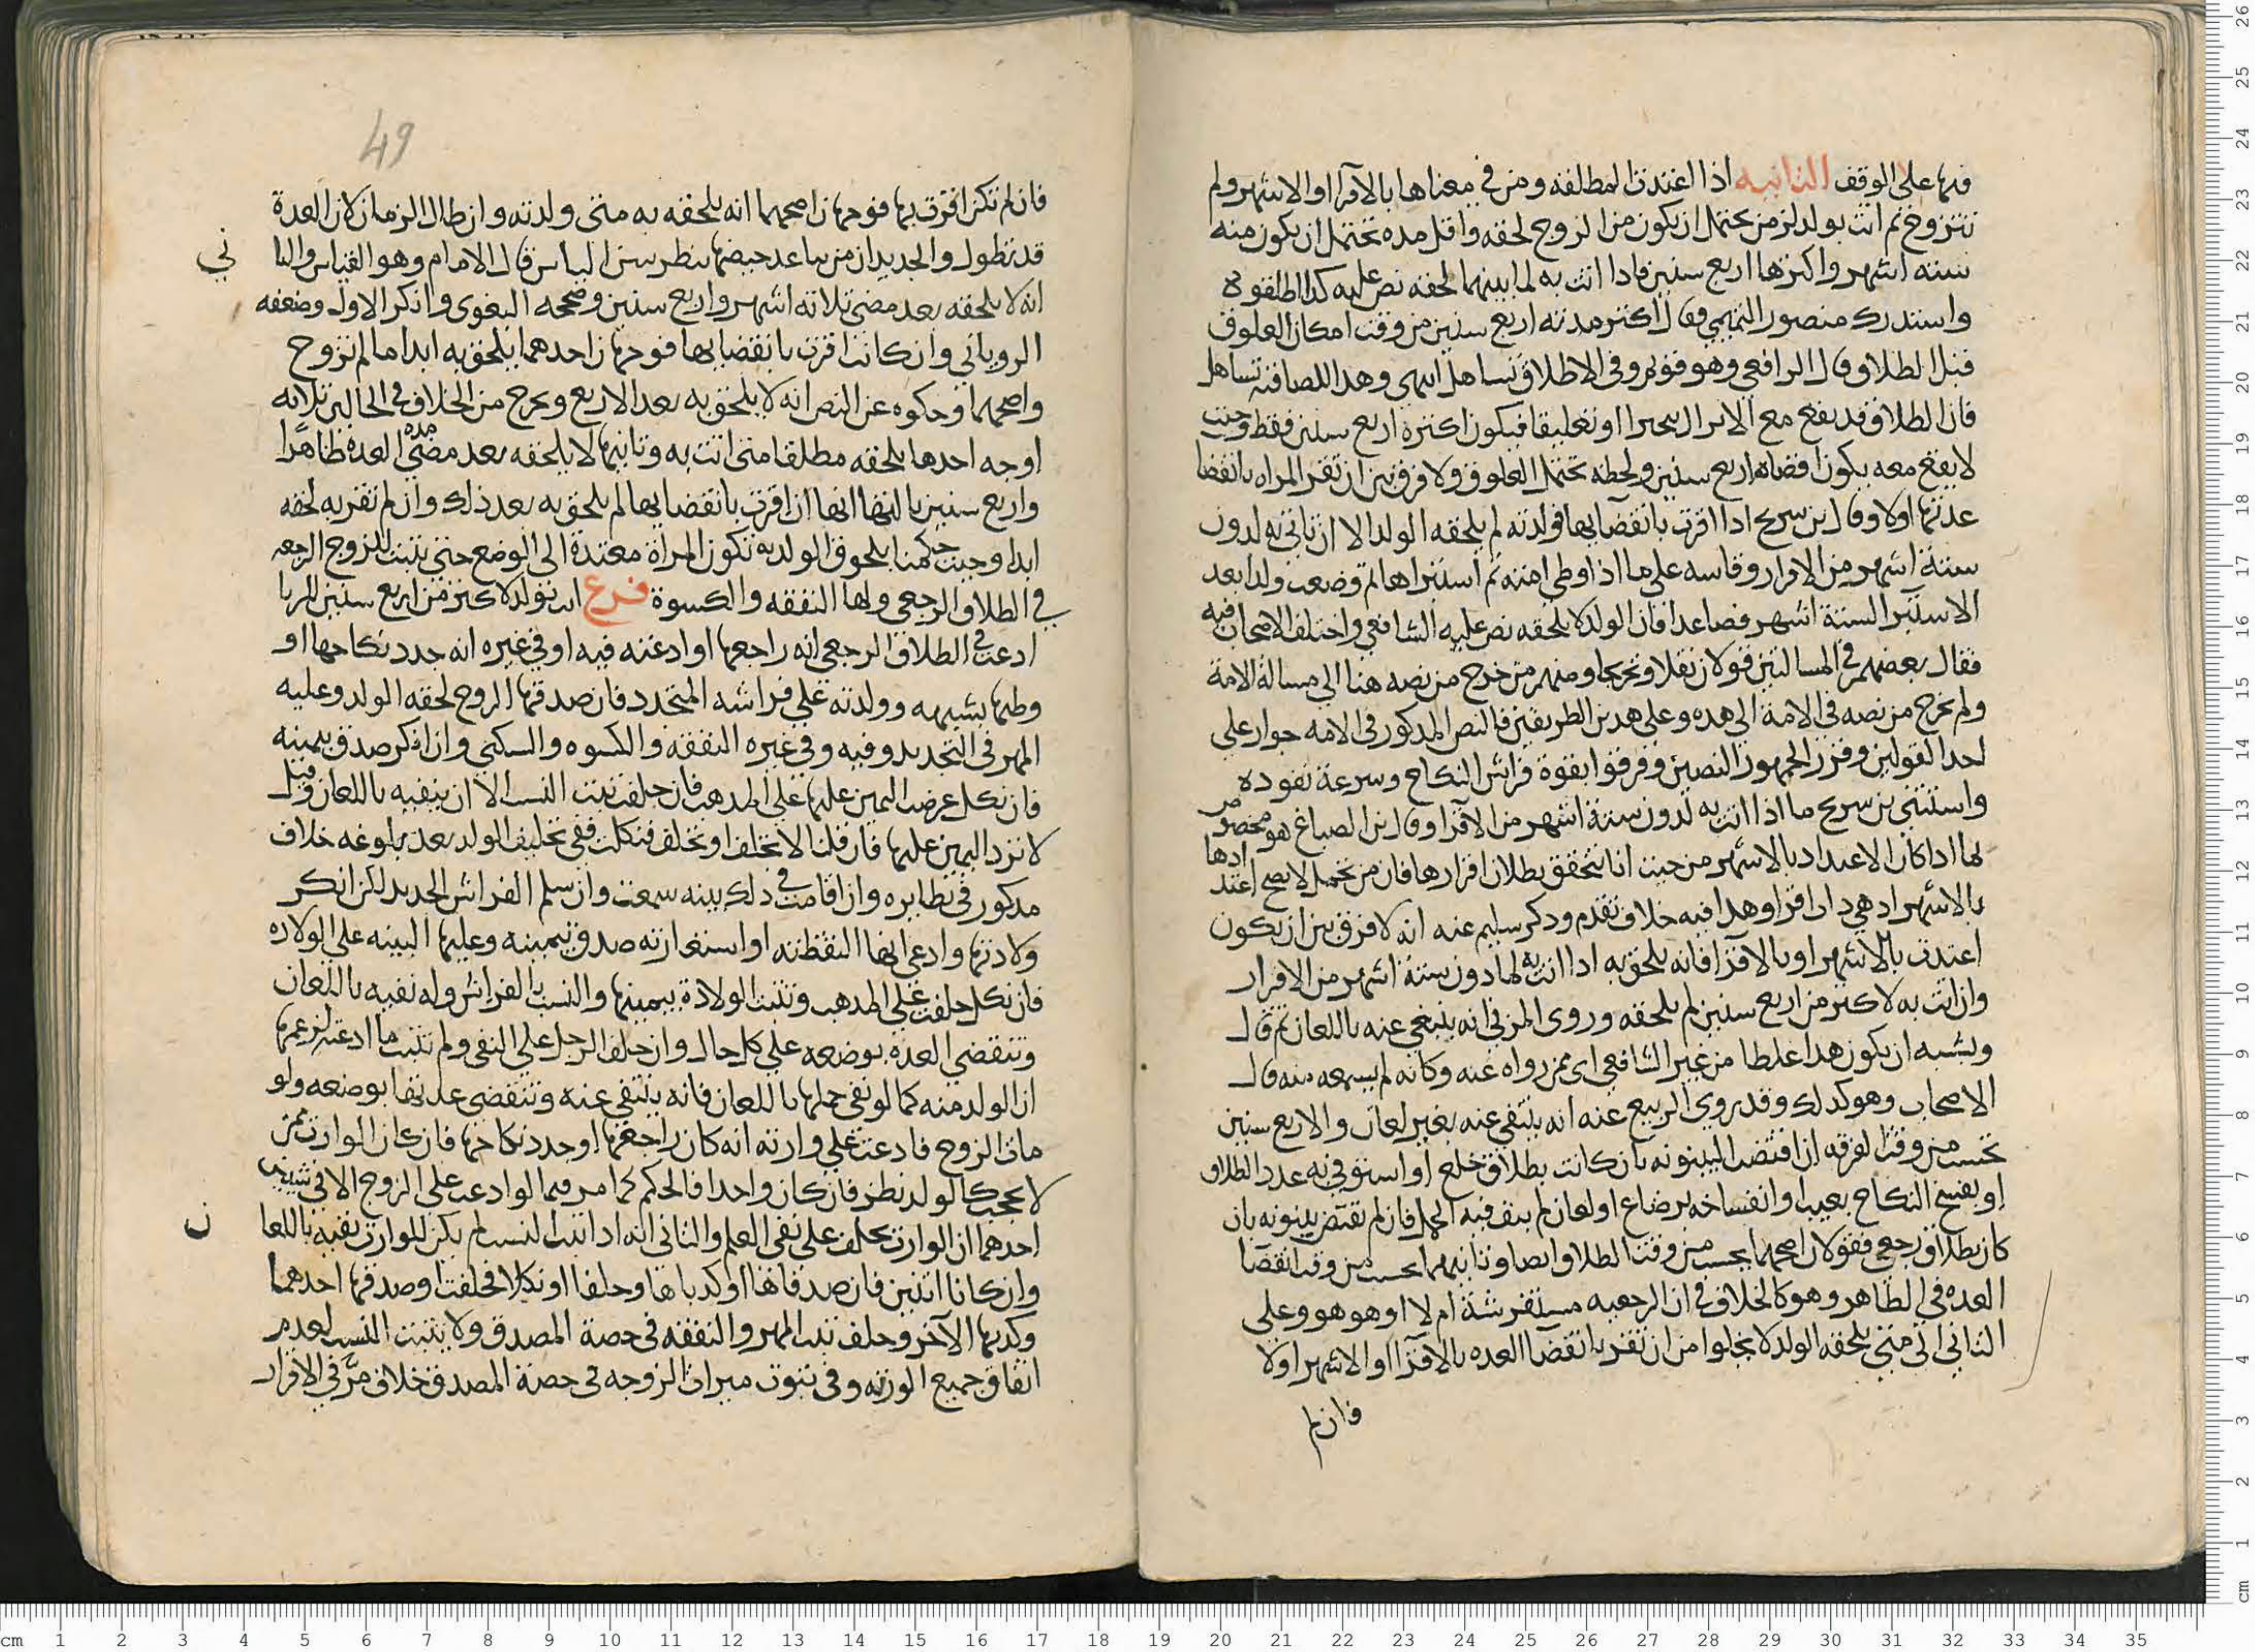 فيها على الوقف الثانيه اذا اعتدت المطلقه ومن في معناها بالاقرا او الاشهر ولم
تتزوج ثم اتت بولد لزمن يحتمل ان يكون من الزوج لحقه واقل مده تحتمل ان يكون منه
سته اشهر واكثرها اربع سنين فاذا اتت به لما بينهما لحقه نص عليه كذا اطلقوه
واستدرك منصور التميمي وقال اكثر مدته اربع سنين من وقت امكان العلوق
قبل الطلاق وقال الرافعي وهو قويم وفي الاطلاق تساهل انتهى وهذا ايضا فيه تساهل
فان الطلاق قد يقع مع الانزال تنجيزا او تعليقا فيكون اكثره اربع سنين فقط وحيث
لا يقع معه يكون اقصاه اربع سنين ولحظه تحتمل العلوق ولا فرق بين ان تقر المراه بانقضا
عدتها اولا وقال بن سريج اذا اقرت بانقضايها فولدته لم يلحقه الولد الا ان تاتي به لدون
ستة اشهر من الاقرار وقاسه على ما اذا وطي امته ثم استبراها ثم وضعت ولدا بعد
الاستبرا لستة اشهر فصاعدا فان الولد لا يلحقه نص عليه الشافعي واختلف الاصحاب فيه
فقال بعضهم في المسالتين قولان نقلا وتخريجا ومنهم من خرج من نصه هنا الى مسالة الامة
ولم يخرج من نصه في الامة الى هذه وعلى هذين الطريقين فالنص المذكور في الامه جواز على
احد القولين وقرر الجمهور النصين وفرقوا بقوة فراش النكاح وسرعة نفوذه
واستثنى بن سريج ما اذا اتت به لدون ستة اشهر من الاقرا وقال بن الصباغ هو محصور
لها اذا كان الاعتداد بالاشهر من حيث انا نتحقق بطلان اقرارها فان من تحمل لا يصح اعتدادها
بالاشهر اذ هي ذات اقرا وهذا فيه خلاف تقدم وذكر سليم عنه انه لا فرق بين ان يكون
اعتدت بالاشهر او بالاقرا فانه يلحق به اذا اتت به لما دون ستة اشهر من الاقرار
وان اتت به لاكثر من اربع سنين لم يلحقه وروى المزني انه ينتفي عنه باللعان ثم قال
ويشبه ان يكون هذا غلطا من غير الشافعي اي ممن رواه عنه وكانه لم يسمعه منه قال
الاصحاب وهو كذلك وقد روى الربيع عنه انه ينتفي عنه بغير لعان والاربع سنين
تحسب من وقت الفرقه ان اقتضت البينونه بان كانت بطلاق خلع او استوفي به عدد الطلاق
او بفسخ النكاح بعيب او انفساخه برضاع او لعان لم ينف فيه الحمل فان لم تقتض بينونه بان
كان بطلاق رجعي فقولان اصحهما يحسب من وقت الطلاق ايضا وثانيهما يحسب من وقت انقضا
العده في الظاهر وهو كالخلاف في ان الرجعيه مستفرشة ام لا او هو هو وعلى
الثاني الى متى يلحقه الولد لا يخلوا من ان تقر بانقضا العده بالاقرا او الاشهر اولا
فان لم
49
فان لم تكن اقرت بها فوجهان اصحهما انه يلحقه به متى ولدته وان طال الزمان لان العدة
قد تطول والجديد ان من تباعد حيضها تنتظر سن الياس قال الامام وهو القياس والثا
ني
انه لا يلحقه بعد مضي ثلاثه اشهر واربع سنين وصححه البغوي وانكر الاول وضعفه
الروياني وان كانت اقرت بانقضايها فوجهان احدهما يلحق به ابدا ما لم تزوج
واصحهما وحكوه عن النص انه لا يلحق به بعد الاربع ويخرج من الخلاف في الحالين ثلاثه
اوجه احدها يلحقه مطلقا متى اتت به وثانيها لا يلحقه بعد مضي مده العدة ظاهرا
واربع سنين ثالثها انها ان اقرت بانقضايها لم يلحق به بعد ذلك وان لم تقر به لحقه
ابدا وحيث حكمنا بلحوق الولد به تكون المراة معتدة الى الوضع حتى يثبت للزوج الرجعه
في الطلاق الرجعي ولها النفقه والكسوة فرع اتت بولد لاكثر من اربع سنين
ادعت في الطلاق الرجعي انه راجعها او ادعته فيه او في غيره انه جدد نكاحها او
وطيها بشبهه وولدته على فراشه المتجدد فان صدقها الزوج لحقه الولد وعليه
المهر في التجديد وفيه وفي غيره النفقه والكسوه والسكنى وان انكر صدق بيمينه
فان نكل عرضت اليمين عليها على المذهب فان حلفت ثبت النسب الا ان ينفيه باللعان وقيل
لا ترد اليمين عليها فان قلنا لا تحلف او تحلف فنكلت ففي تحليف الولد بعد بلوغه خلاف
مذكور في نظايره وان اقامت في ذلك بينه سمعت وان سلم الفراش الجديد لكن انكر
ولادتها وادعى انها التقطته او استعارته صدق بيمينه وعليها البينه على الولاده
فان نكل حلفت على المذهب وتثبت الولادة بيمينها والنسب بالفراش وله نفيه باللعان
وتنقضي العدة بوضعه على كل حال وان حلف الرجل على النفي ولم تثبت ما ادعته لزعمها
ان الولد منه كما لو نفى حملها باللعان فانه ينتفي عنه وتنقضي عدتها بوضعه ولو
مات الزوج فادعت على وارثه انه كان راجعها او جدد نكاحها فان كان الوارث ممن
لا يحجب كالولد نظر فان كان واحدا فالحكم كما مر فيما لو ادعت على الزوج الا في شيئين
احدهما ان الوارث يحلف على نفي العلم والثاني انه اذا ثبت النسب لم يكن للوارث نفيه باللعا
ن
وان كانا اثنين فان صدقاها او كذباها وحلفا او نكلا فحلفت او صدقها احدهما
وكذبها الآخر وحلف ثبت المهر والنفقه في حصة المصدق ولا يثبت النسب لعدم
اتفاق جميع الورثه وفي ثبوت ميراث الزوجه في حصة المصدق خلاف مر في الاقرار